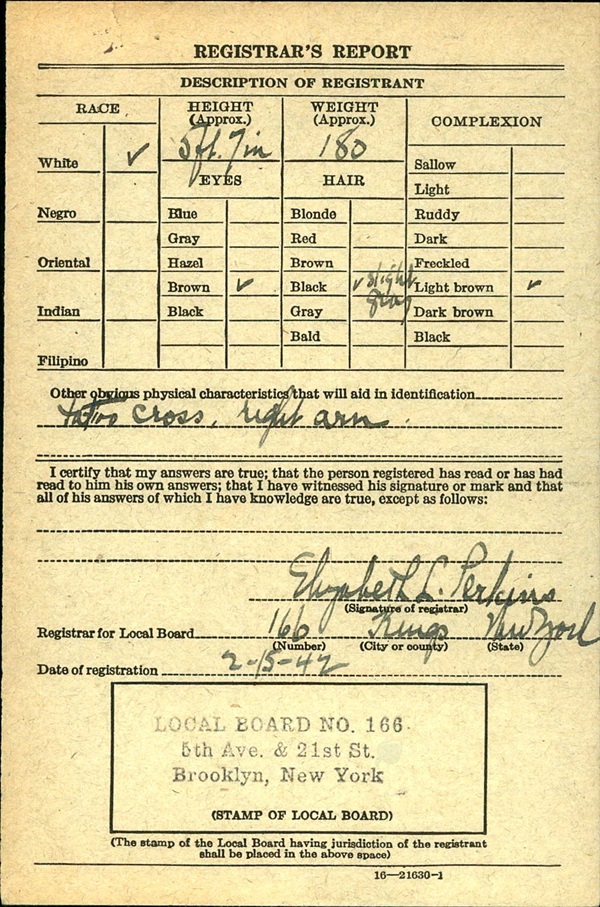 REGISTRAR'S REPORT
DESCRIPTION OF REGISTRANT
RACE
White ✓
Negro
Oriental
Indian
Filipino
HEIGHT
(Approx.)
5 ft. 7 in
EYES
Blue
Gray
Hazel
Brown ✓
Black
WEIGHT
(Approx.)
180
HAIR
Blonde
Red
Brown
Black ✓ slight gray
Gray
Bald
COMPLEXION
Sallow
Light
Ruddy
Dark
Freckled
Light brown ✓
Dark brown
Black
Other obvious physical characteristics that will aid in identification
cross, right arm.
I certify that my answers are true; that the person registered has read or has had
read to him his own answers; that I have witnessed his signature or mark and that
all of his answers of which I have knowledge are true, except as follows:
Elizabeth L. Perkins
(Signature of registrar)
Registrar for Local Board 166 Kings New York
(Number) (City or county) (State)
Date of registration 2-15-42
LOCAL BOARD NO. 166
5th Ave. & 21st St.
Brooklyn, New York
(STAMP OF LOCAL BOARD)
(The stamp of the Local Board having jurisdiction of the registrant
shall be placed in the above space)
16—21630-1